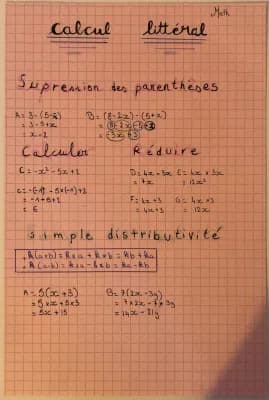 Math
Calcul littéral
Supression des parenthèses
A= 3-(5-x) B= (8-2x)-(5+x)
= 3-5+x = 8-2x-5
= x-2 = -3x+3
Calculer Réduire
C= -x²-5x+2 D= 4x+3x E= 4x×3x
= 7x = 12x²
= -1+5+2 F= 4x+3 G= 4x×3
= 6 = 4x+3 = 12x
simple distributivité
• k(a+b) = k×a + k×b = kb+ka
• k(a-b) = k×a - k×b = ka-kb
A= 5(x+3) B= 7(2x-3y)
= 5×x+5×3 = 7×2x-7×3y
= 5x+15 = 14x-21y